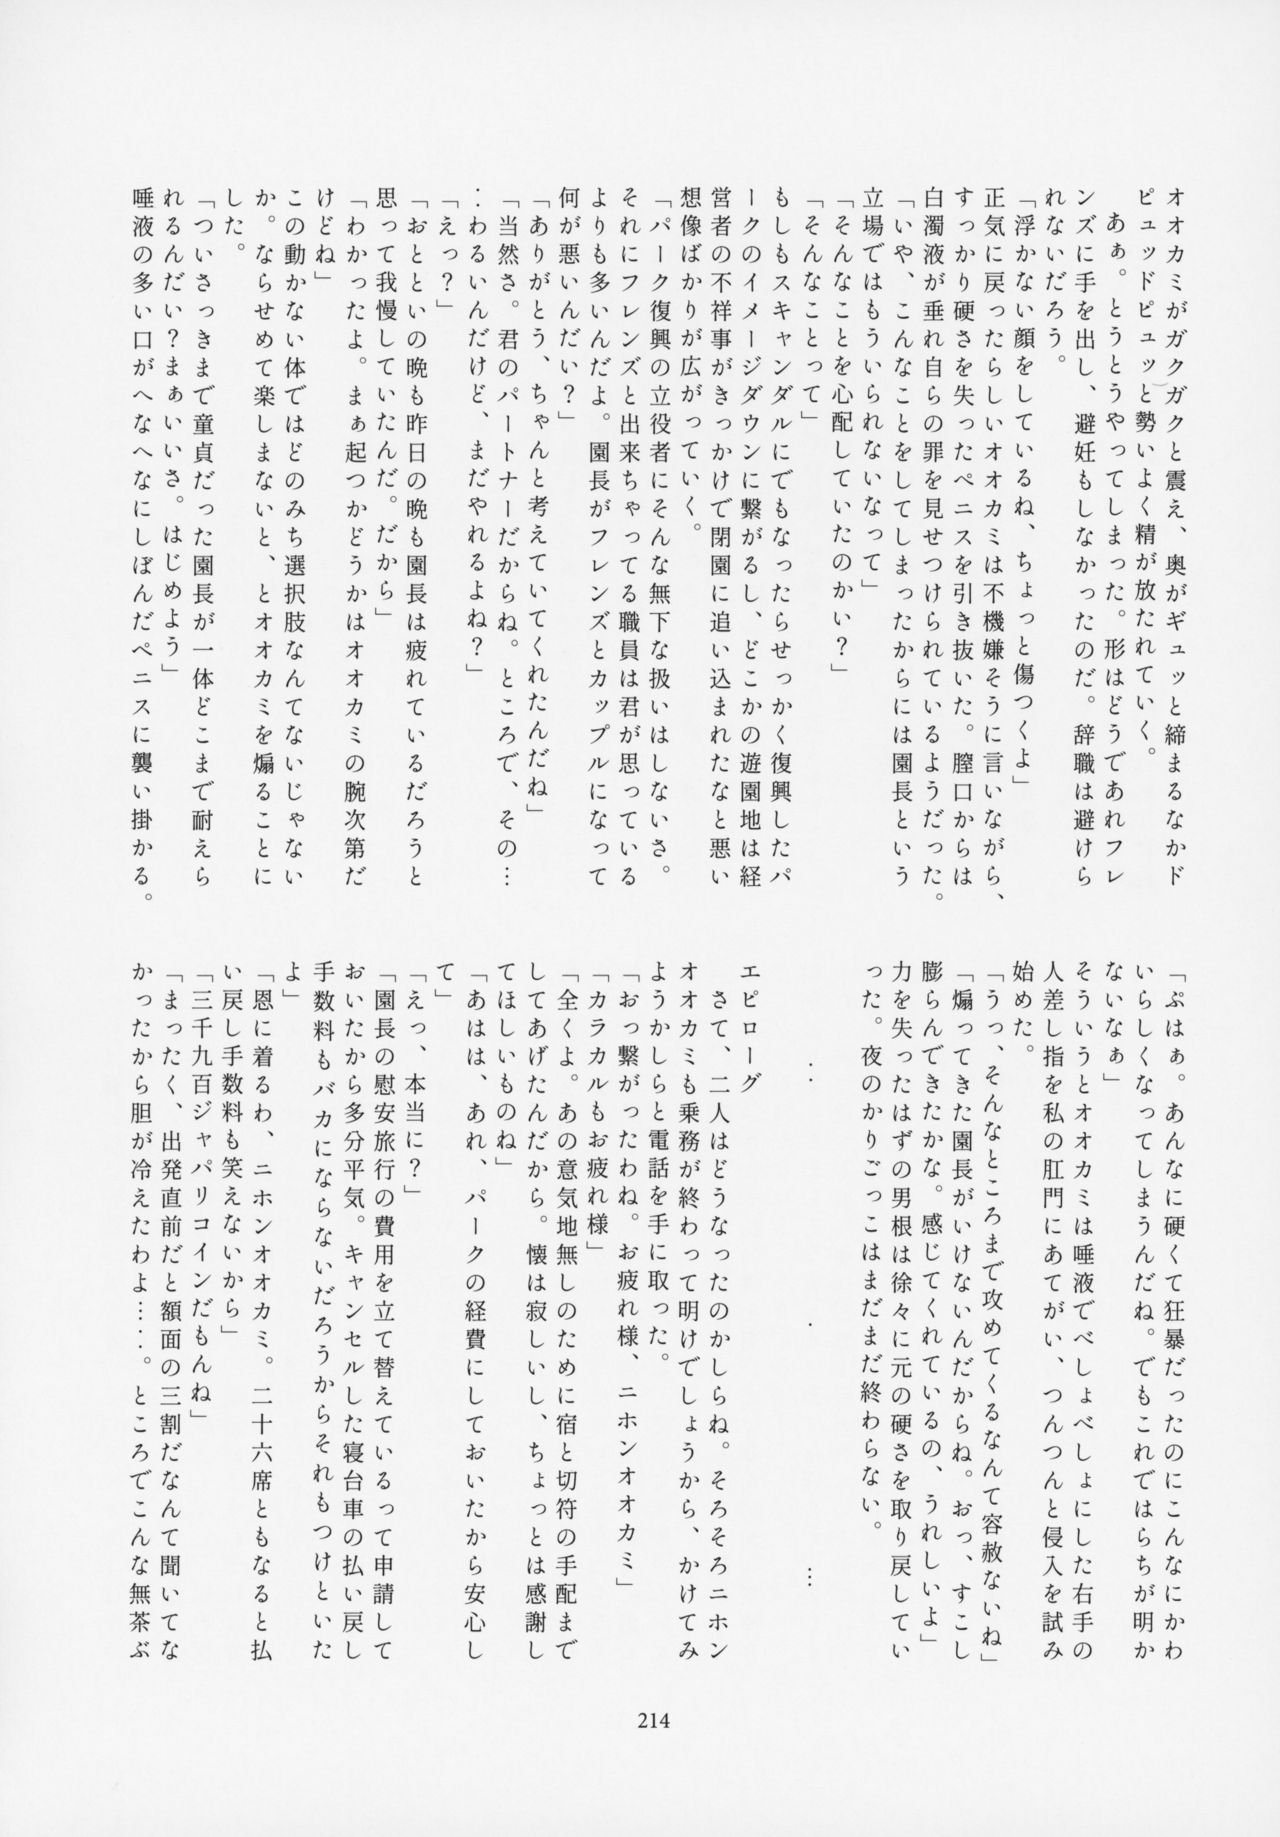 オオカミがガクガクと震え、奥がギュッと締まるなかド
ピュッドピュッと勢いよく精が放たれていく。
あぁ。とうとうやってしまった。形はどうであれフレ
ンズに手を出し、避妊もしなかったのだ。辞職は避けら
れないだろう。
「浮かない顔をしているね、ちょっと傷つくよ」
正気に戻ったらしいオオカミは不機嫌そうに言いながら、
すっかり硬さを失ったペニスを引き抜いた。膣口からは
白濁液が垂れ自らの罪を見せつけられているようだった。
「いや、こんなことをしてしまったからには園長という
立場ではもういられないなって」
「そんなことを心配していたのかい？」
「そんなことって」
もしもスキャンダルにでもなったらせっかく復興したパ
ークのイメージダウンに繋がるし、どこかの遊園地は経
営者の不祥事がきっかけで閉園に追い込まれたなと悪い
想像ばかりが広がっていく。
「パーク復興の立役者にそんな無下な扱いはしないさ。
それにフレンズと出来ちゃってる職員は君が思っている
よりも多いんだよ。園長がフレンズとカップルになって
何が悪いんだい？」
「ありがとう、ちゃんと考えていてくれたんだね」
「当然さ。君のパートナーだからね。ところで、その…
…わるいんだけど、まだやれるよね？」
「えっ？」
「おとといの晩も昨日の晩も園長は疲れているだろうと
思って我慢していたんだ。だから」
「わかったよ。まぁ起つかどうかはオオカミの腕次第だ
けどね」
この動かない体ではどのみち選択肢なんてないじゃない
か。ならせめて楽しまないと、とオオカミを煽ることに
した。
「ついさっきまで童貞だった園長が一体どこまで耐えら
れるんだい？まぁいいさ。はじめよう」
唾液の多い口がへなへなにしぼんだペニスに襲い掛かる。
「ぷはぁ。あんなに硬くて狂暴だったのにこんなにかわ
いらしくなってしまうんだね。でもこれではらちが明か
ないなぁ」
そういうとオオカミは唾液でべしょべしょにした右手の
人差し指を私の肛門にあてがい、つんつんと侵入を試み
始めた。
「うっ、そんなところまで攻めてくるなんて容赦ないね」
「煽ってきた園長がいけないんだからね。おっ、すこし
膨らんできたかな。感じてくれているの、うれしいよ」
力を失ったはずの男根は徐々に元の硬さを取り戻してい
った。夜のかりごっこはまだまだ終わらない。
‥　・　…
エピローグ
さて、二人はどうなったのかしらね。そろそろニホン
オオカミも乗務が終わって明けでしょうから、かけてみ
ようかしらと電話を手に取った。
「おっ繋がったわね。お疲れ様、ニホンオオカミ」
「カラカルもお疲れ様」
「全くよ。あの意気地無しのために宿と切符の手配まで
してあげたんだから。懐は寂しいし、ちょっとは感謝し
てほしいものね」
「あはは、あれ、パークの経費にしておいたから安心し
て」
「えっ、本当に？」
「園長の慰安旅行の費用を立て替えているって申請して
おいたから多分平気。キャンセルした寝台車の払い戻し
手数料もバカにならないだろうからそれもつけといた
よ」
「恩に着るわ、ニホンオオカミ。二十六席ともなると払
い戻し手数料も笑えないから」
「三千九百ジャパリコインだもんね」
「まったく、出発直前だと額面の三割だなんて聞いてな
かったから胆が冷えたわよ‥‥。ところでこんな無茶ぶ
214